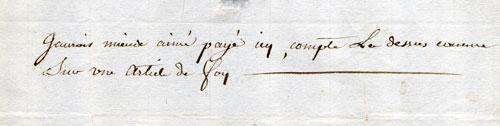 Jaurois mieux aimé payé icy, compte La dessus comme
Sur vne Articl de foy